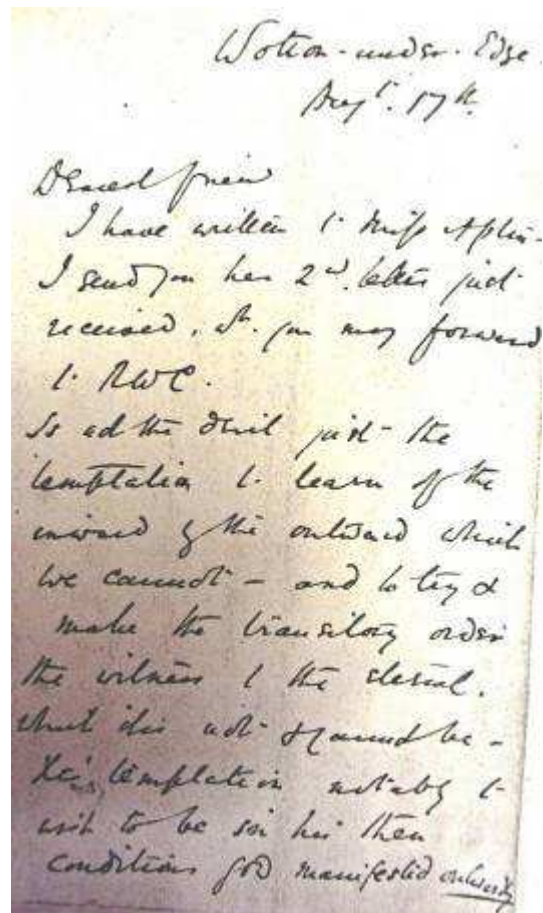 Wotton-under-Edge.
Augt. 17th.
Dearest friend
I have written to Miss
I send you her 2nd. letter just
received, wh. you may forward
to RWC.
Is not the devil just the
temptation to learn of the
inward by the outward which
we cannot – and to try &
make the transitory order
the witness to the eternal.
what it is not & cannot be –
temptation notably to
wish to be in his then
conditions God manifested outwardly